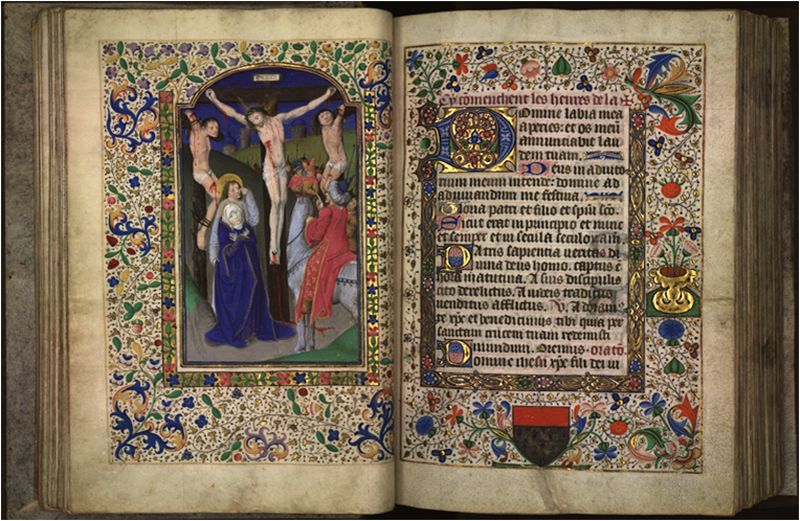 Cy comenchent les heures de la ✠
Domine labia mea
aperies: et os meū
annunciabit lau
dem tuam.
Deus in adiuto
rium meum intende: domine ad
adiuuandum me festina.
Gloria patri et filio et spiui sco.
Sicut erat in principio et nunc
et semper et in secula seculorum.
Patris sapientia veritas di
uina deus homo. captus ē
hora matutina. A suis discipulis
cito derelictus. A iudeis traditus
venditus afflictus. V. Adoram⁹
te xpe et benedicimus tibi quia per
sanctam crucem tuam redemisti
mundum. Oremus. orato.
Domine ihesu xpe fili dei ui